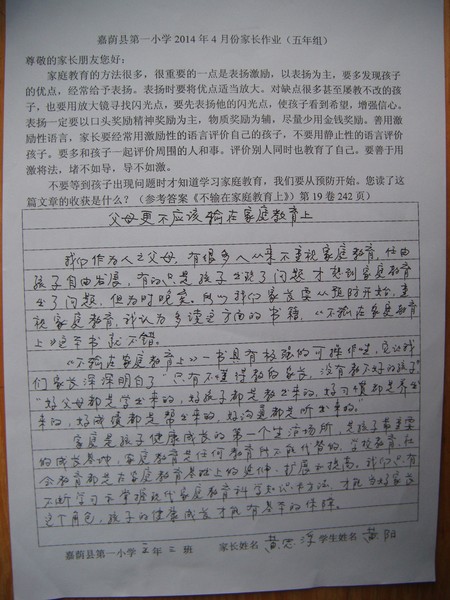 嘉荫县第一小学 2014 年 4 月份家长作业（五年组）
尊敬的家长朋友您好：
家庭教育的方法很多，很重要的一点是表扬激励，以表扬为主，要多发现孩子
的优点，经常给予表扬。表扬时要将优点适当放大。对缺点很多甚至屡教不改的孩
子，也要用放大镜寻找闪光点，要先表扬他的闪光点，使孩子看到希望，增强信心。
表扬一定要以口头奖励精神奖励为主，物质奖励为辅，尽量少用金钱奖励。善用激
励性语言，家长要经常用激励性的语言评价自己的孩子，不要用静止性的语言评价
孩子。要多和孩子一起评价周围的人和事。评价别人同时也教育了自己。要善于用
激将法，堵不如导，导不如激。
不要等到孩子出现问题时才知道学习家庭教育，我们要从预防开始。您读了这
篇文章的收获是什么？（参考答案《不输在家庭教育上》）第 19 卷 242 页）
父母更不应该输在家庭教育上
我们作为人之父母，有很多人从来不重视家庭教育，任由
孩子自由发展，有的只是孩子出现了问题才想到家庭教育
出了问题，但为时晚矣。所以我们家长要从预防开始，重
视家庭教育，我认为多读这方面的书籍，《不输在家庭教育
上》这本书就不错。
《不输在家庭教育上》一书具有极强的可操作性，它让我
们家长深深明白了"只有不懂得教的家长，没有教不好的孩子"
"好父母都是学出来的，好孩子都是教出来的，好习惯都是养出
来的，好成绩都是帮出来的，好沟通都是听出来的。"
家庭是孩子健康成长的第一个生活场所，是孩子最重要
的成长基础，家庭教育是任何教育所不能代替的，学校教育、社
会教育都是在家庭教育基础上的延伸、扩展和提高。我们只有
不断学习并掌握现代家庭教育科学知识和方法，才能当好家长
这个角色，孩子的健康成长才能有基本的保障。
嘉荫县第一小学 五 年 二 班 家长姓名 黄 学生姓名 黄阳